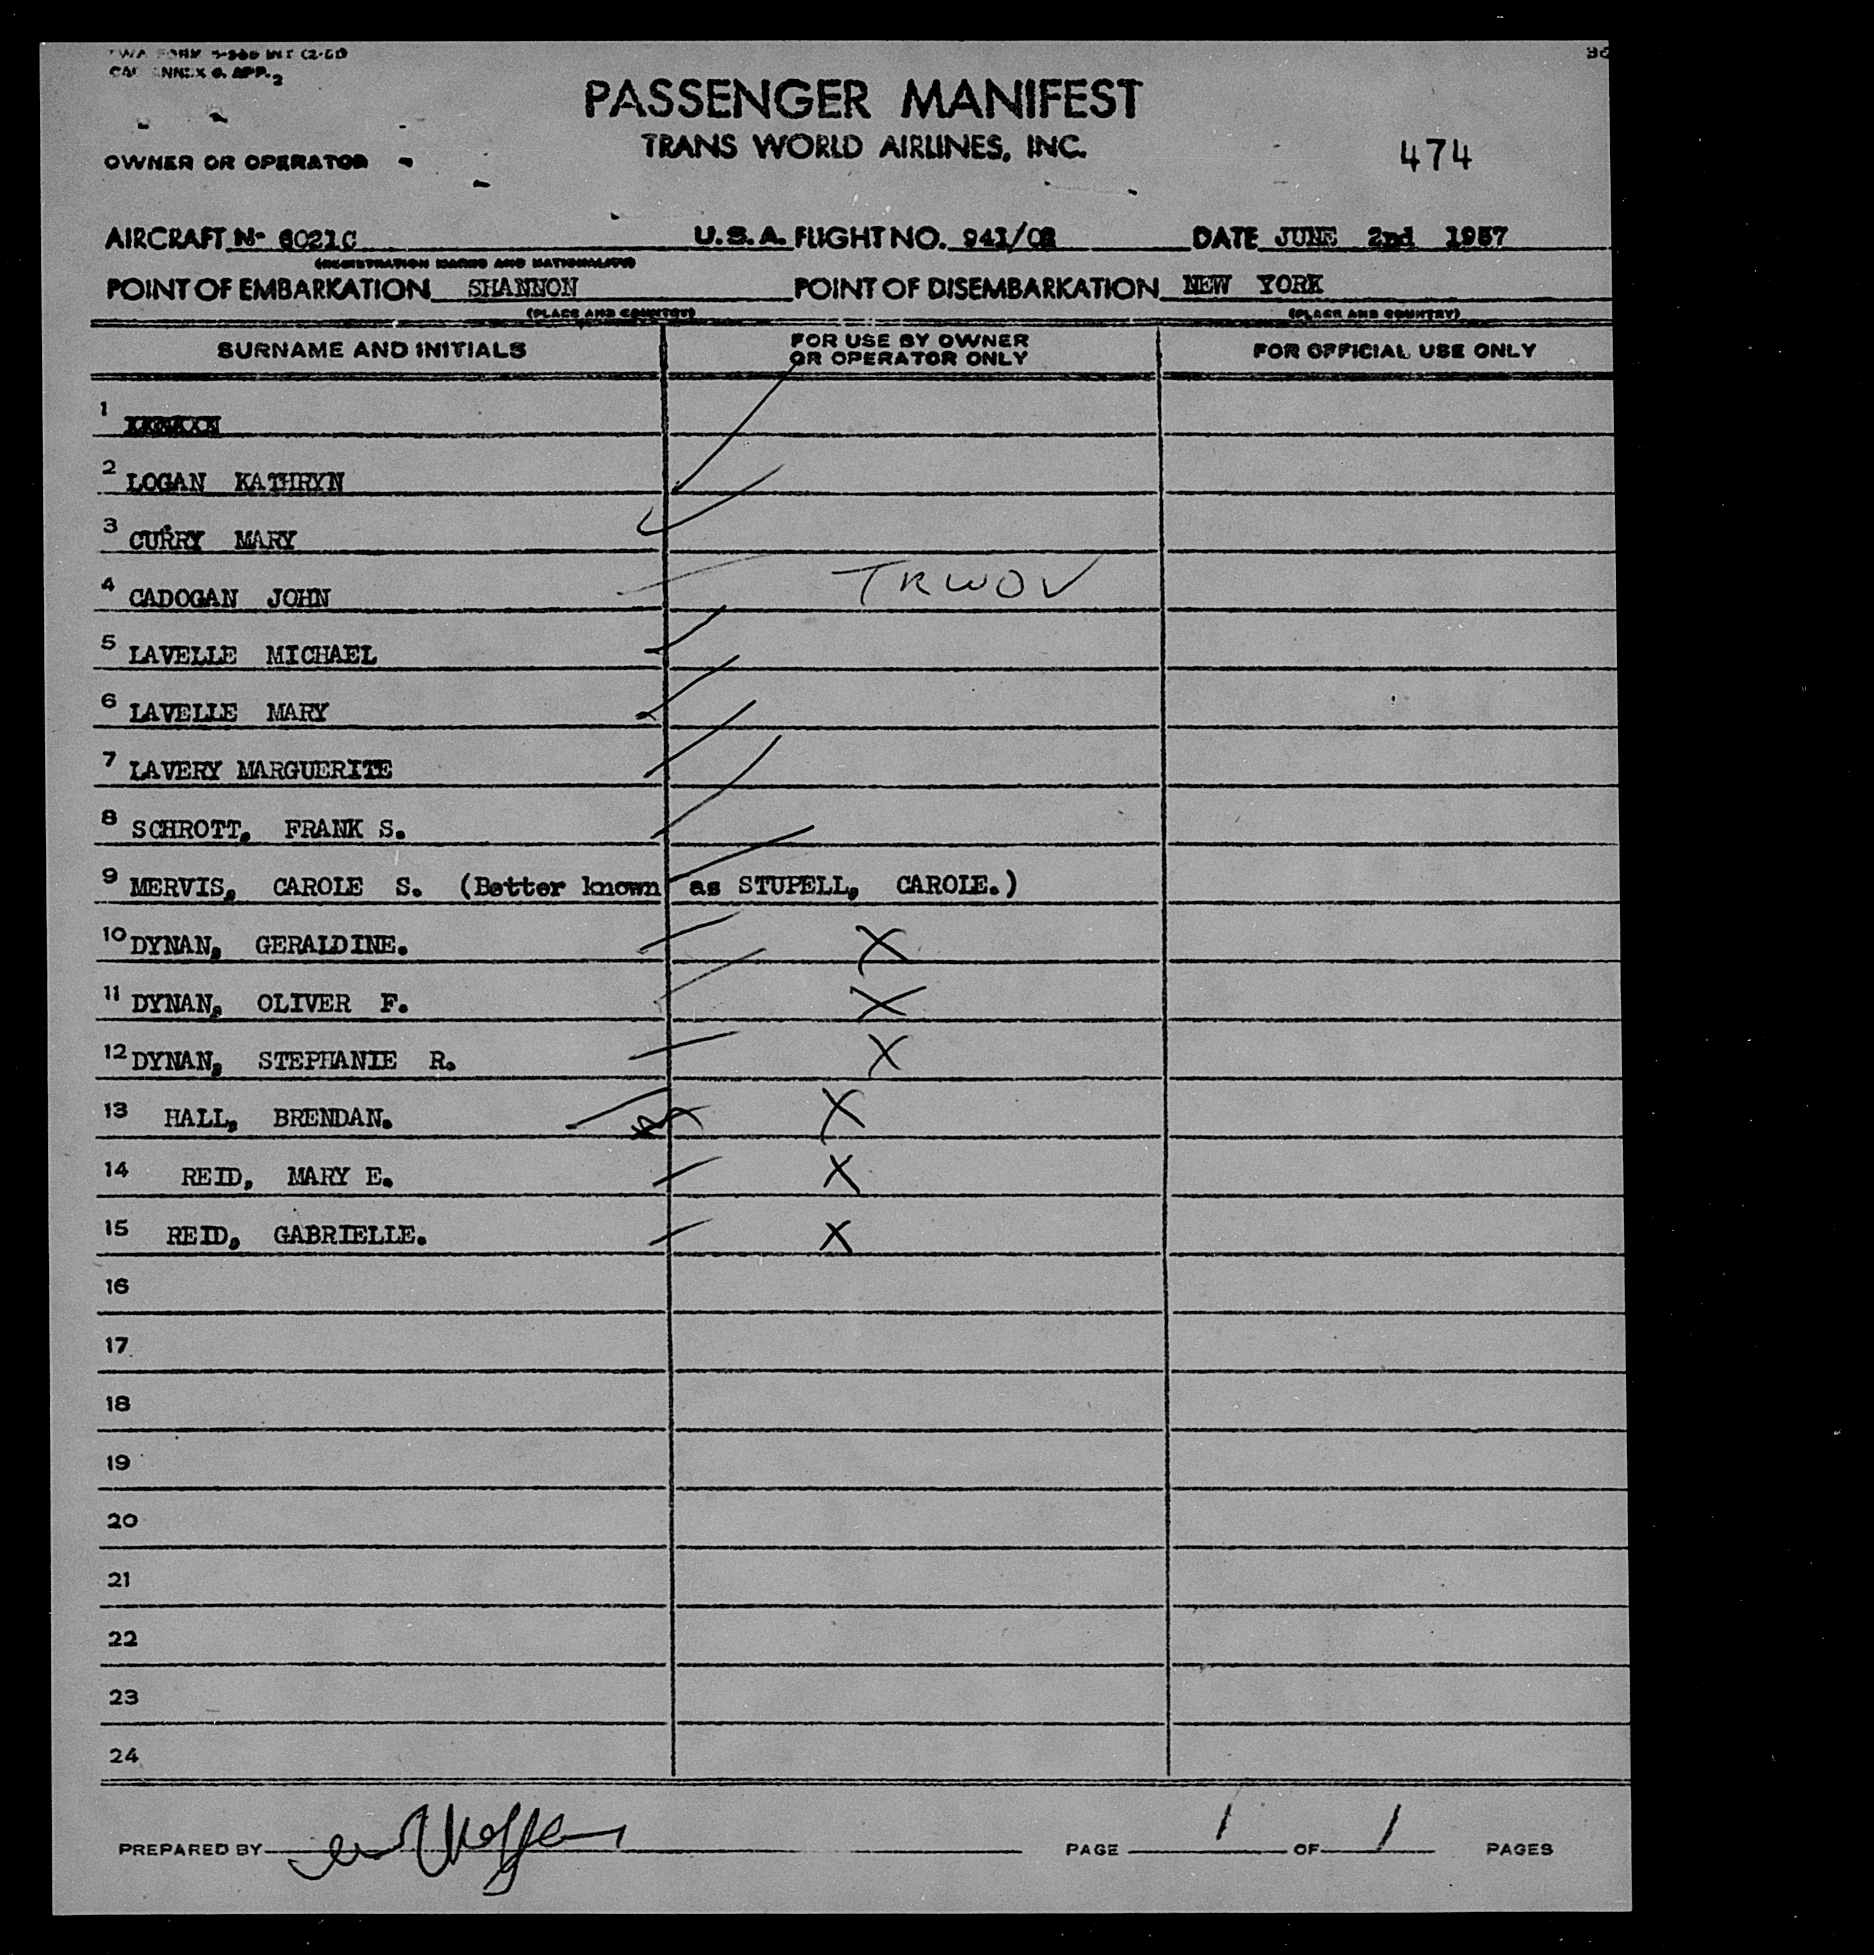 CAO ANNEX 9, APP. 2
PASSENGER MANIFEST
TRANS WORLD AIRLINES, INC.
474
OWNER OR OPERATOR
AIRCRAFT N- 6021C U.S.A. FLIGHT NO. 941/02 DATE JUNE 2nd 1957
(REGISTRATION MARKS AND NATIONALITY)
POINT OF EMBARKATION SHANNON POINT OF DISEMBARKATION NEW YORK
(PLACE AND COUNTRY) (PLACE AND COUNTRY)
SURNAME AND INITIALS FOR USE BY OWNER OR OPERATOR ONLY FOR OFFICIAL USE ONLY
1
2 LOGAN KATHRYN
3 CURRY MARY
4 CADOGAN JOHN TRWOV
5 LAVELLE MICHAEL
6 LAVELLE MARY
7 LAVERY MARGUERITE
8 SCHROTT, FRANK S.
9 MERVIS, CAROLE S. (Better known as STUPELL, CAROLE.)
10 DYNAN, GERALDINE. X
11 DYNAN, OLIVER F. X
12 DYNAN, STEPHANIE R. X
13 HALL, BRENDAN. X
14 REID, MARY E. X
15 REID, GABRIELLE. X
16
17
18
19
20
21
22
23
24
PREPARED BY PAGE 1 OF 1 PAGES